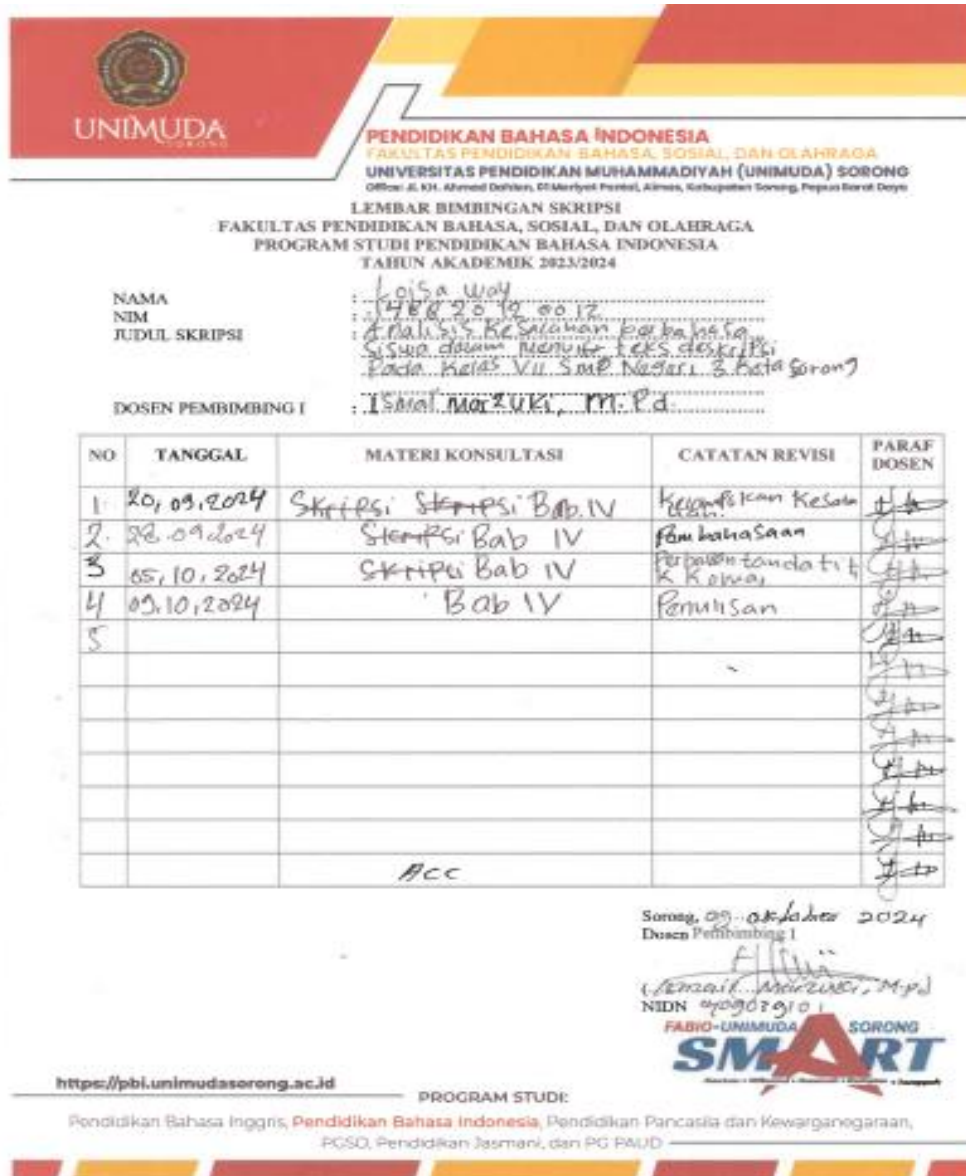 UNIMUDA
SORONG
PENDIDIKAN BAHASA INDONESIA
FAKULTAS PENDIDIKAN BAHASA, SOSIAL, DAN OLAHRAGA
UNIVERSITAS PENDIDIKAN MUHAMMADIYAH (UNIMUDA) SORONG
Office: Jl. KH. Ahmad Dahlan, 01 Mariyat Pantai, Aimas, Kabupaten Sorong, Papua Barat Daya
LEMBAR BIMBINGAN SKRIPSI
FAKULTAS PENDIDIKAN BAHASA, SOSIAL, DAN OLAHRAGA
PROGRAM STUDI PENDIDIKAN BAHASA INDONESIA
TAHUN AKADEMIK 2023/2024
NAMA : Loisa Way
NIM : 2012 0012
JUDUL SKRIPSI : Analisis Kesalahan berbahasa
Siswa dalam Menulis teks deskripsi
Pada Kelas VII SMP Negeri 3 Kota Sorong
DOSEN PEMBIMBING I : Ismail Marzuki, M.Pd.
NO TANGGAL MATERI KONSULTASI CATATAN REVISI PARAF DOSEN
1. 20,09,2024 Skripsi Skripsi Bab IV
2. 28.09.2024 Skripsi Bab IV Pembahasaan
3 05,10,2024 Skripsi Bab IV
4 09.10,2024 Bab IV Penulisan
5
Acc
Sorong, 09 oktober 2024
Dosen Pembimbing I
(Ismail Marzuki, M.Pd
NIDN
FABIO-UNIMUDA SORONG
SMART
https://pbi.unimudasorong.ac.id
PROGRAM STUDI:
Pendidikan Bahasa Inggris, Pendidikan Bahasa Indonesia, Pendidikan Pancasila dan Kewarganegaraan,
PGSD, Pendidikan Jasmani, dan PG PAUD